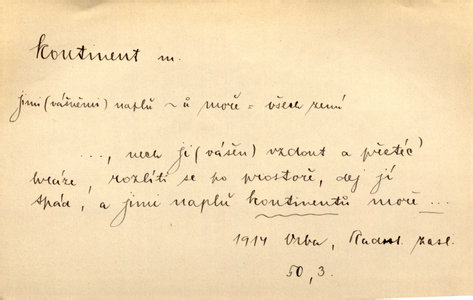 kontinent m.
jimi (vášněmi) naplň ~ů moře = všech zemí
..., nech ji (vášeň) vzdout a přetéc'
hráze, rozlíti se po prostoře, dej jí
spád, a jimi naplň kontinentů moře ...
1914 Vrba, Radost. zasl.
50, 3.